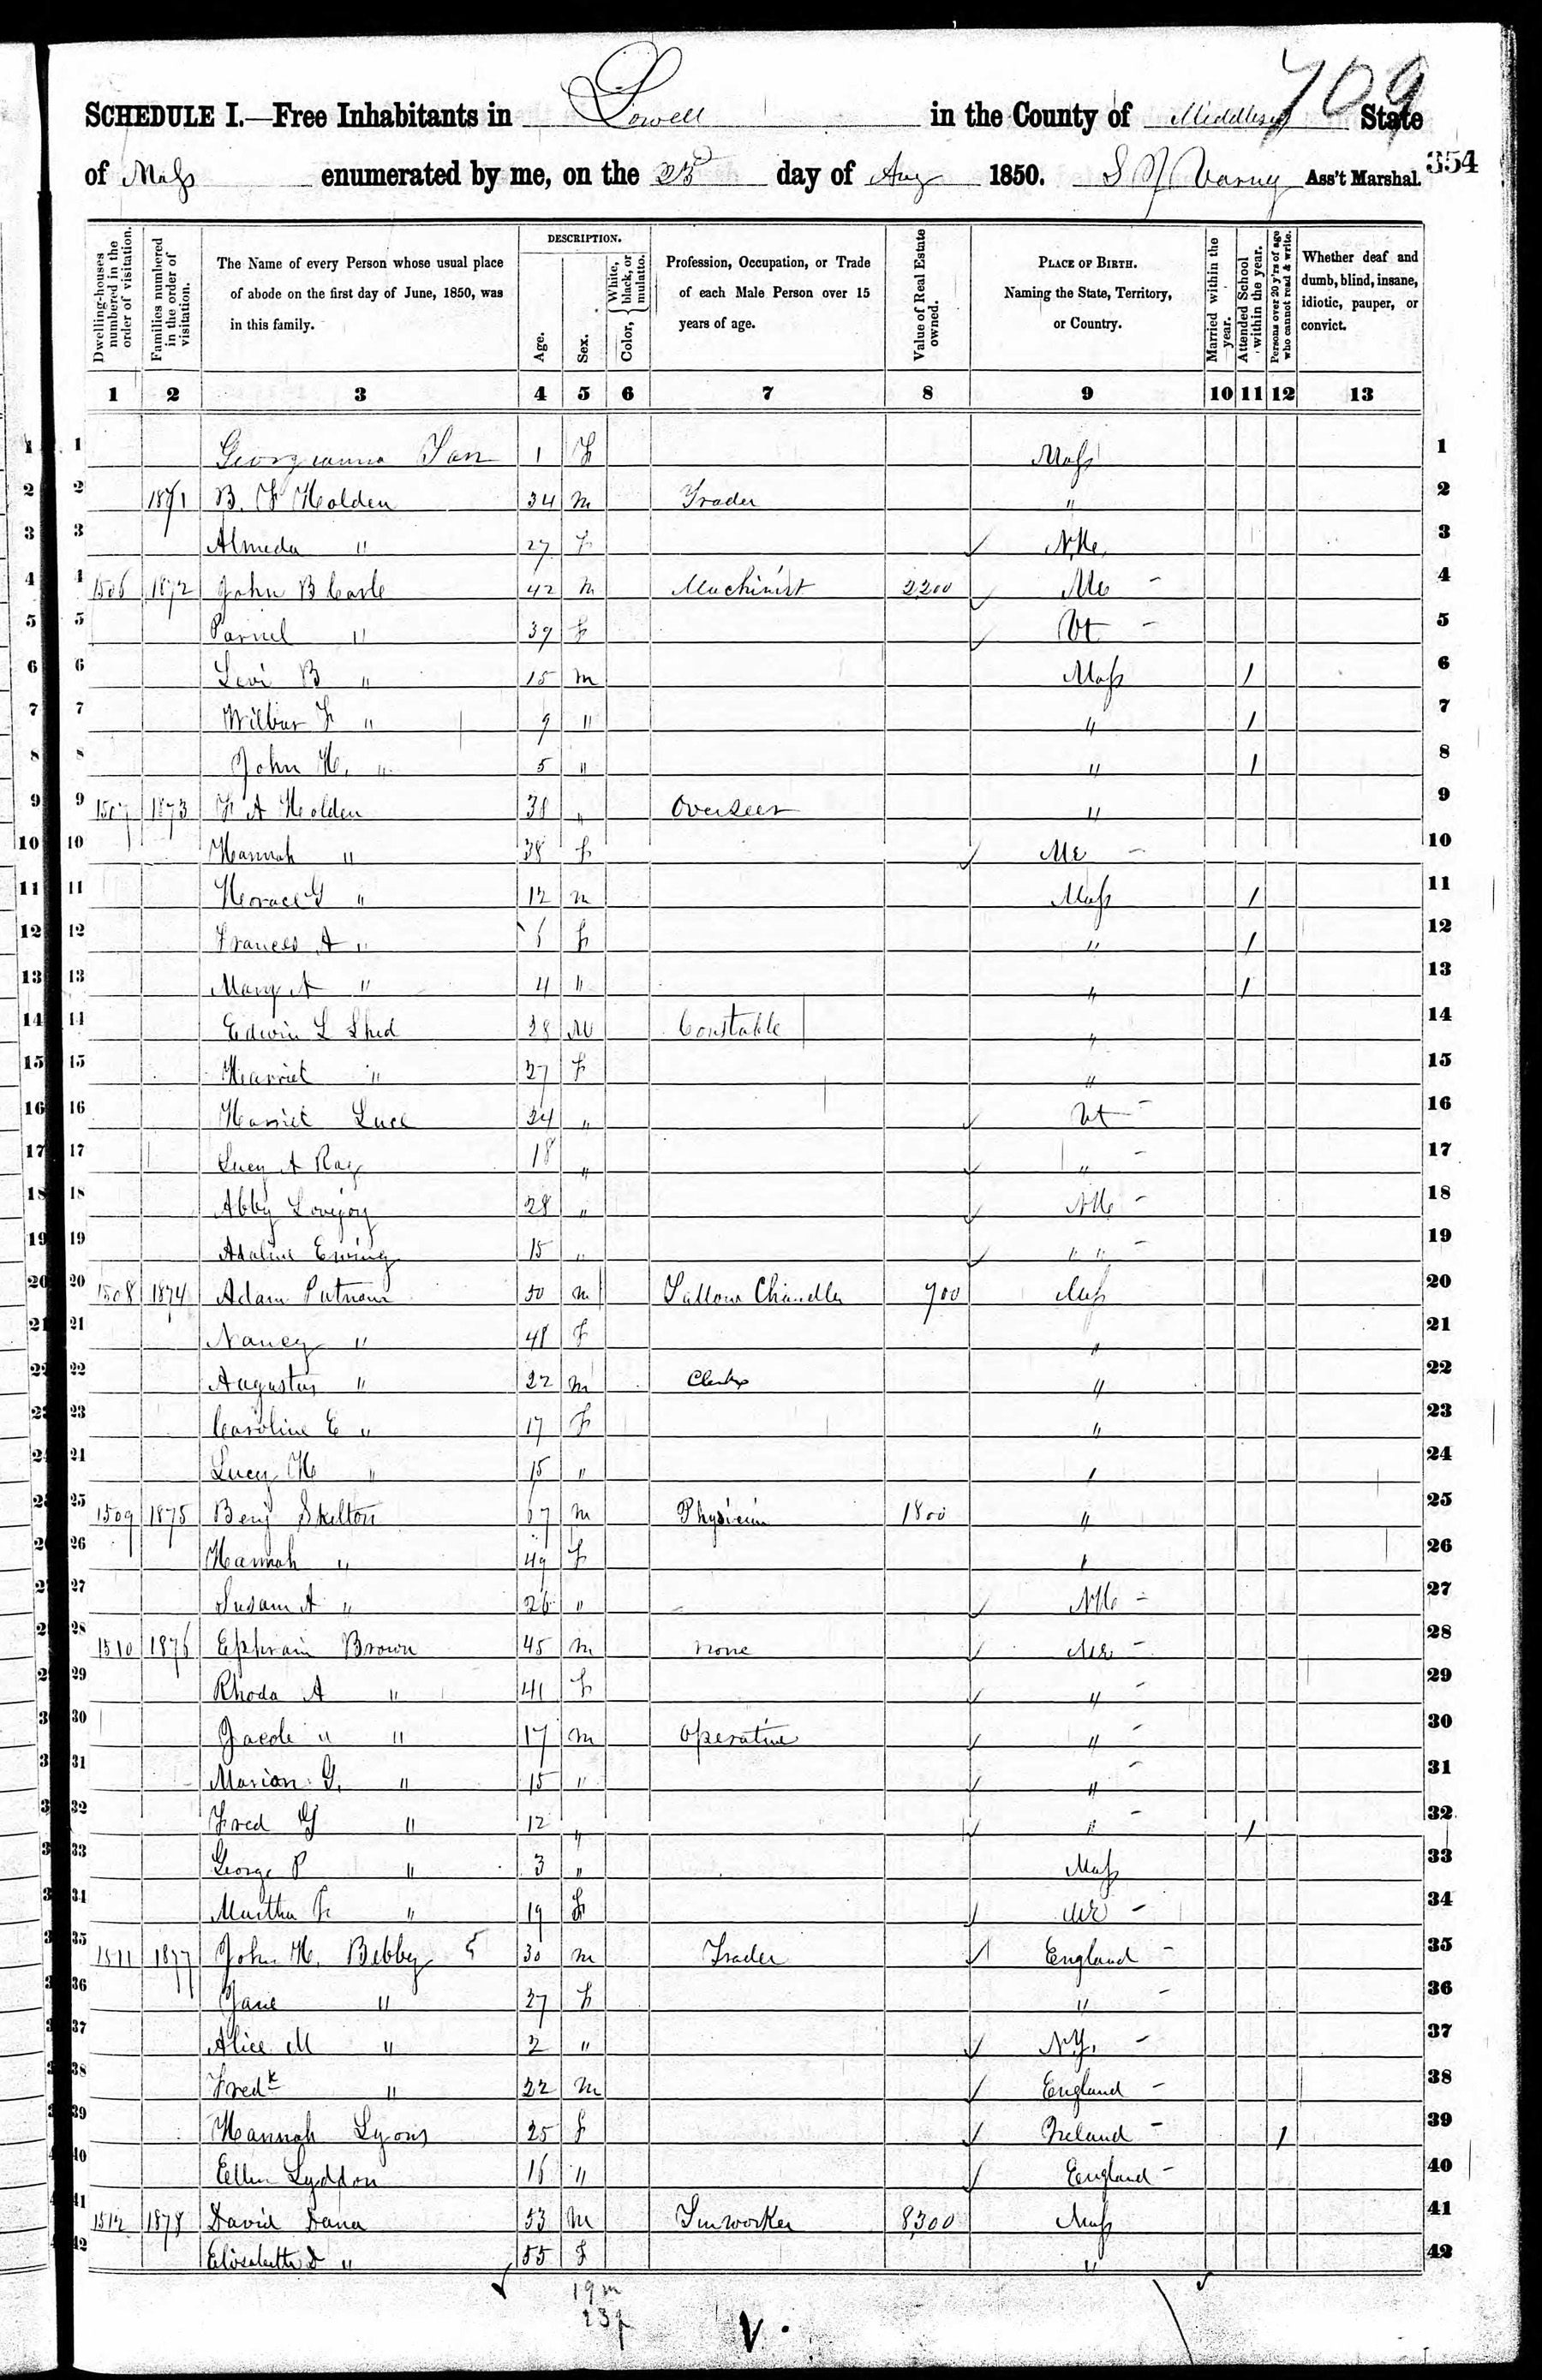 709
SCHEDULE I.—Free Inhabitants in Lowell in the County of Middlesex State
354
of Mass enumerated by me, on the 23d day of Aug 1850. S N Varney Ass't Marshal.
Dwelling-houses numbered in the order of visitation.
Families numbered in the order of visitation.
The Name of every Person whose usual place of abode on the first day of June, 1850, was in this family.
DESCRIPTION.
Age.
Sex.
Color, { White, black, or mulatto.
Profession, Occupation, or Trade of each Male Person over 15 years of age.
Value of Real Estate owned.
PLACE OF BIRTH. Naming the State, Territory, or Country.
Married within the year.
Attended School within the year.
Persons over 20 y'rs of age who cannot read & write.
Whether deaf and dumb, blind, insane, idiotic, pauper, or convict.
1 2 3 4 5 6 7 8 9 10 11 12 13
1 Georgianna 1 F Mass 1
2 1871 B. F Holden 34 m Trader " 2
3 Almeda " 27 F NH, 3
4 1506 1872 John B Carle 42 m Machinist 2200 Me - 4
5 Parnel " 39 F Vt - 5
6 Levi B " 15 m Mass 1 6
7 Wilbur F " 9 " " 1 7
8 John H, " 5 " " 1 8
9 1507 1873 F A Holden 38 " Overseer " 9
10 Hannah " 38 F Me - 10
11 Horace G " 12 m Mass 1 11
12 Frances A " 6 F " 1 12
13 Mary A " 4 " " 1 13
14 Edwin L Shed 28 M Constable " 14
15 Harriet " 27 F " 15
16 Harriet Luce 24 " Vt - 16
17 Lucy A Ray 18 " " - 17
18 Abby Lovejoy 28 " NH - 18
19 Adaline Ewing 15 " " " - 19
20 1508 1874 Adam Putnam 50 m Tallow Chandler 700 Mass 20
21 Nancy " 48 F " 21
22 Augustus " 22 m Clerk " 22
23 Caroline E " 17 F " 23
24 Lucy H " 15 " " 24
25 1509 1875 Benj Skelton 67 m Physician 1800 " 25
26 Hannah " 49 F " 26
27 Susan A " 26 " NH - 27
28 1510 1876 Ephraim Brown 45 m none Me - 28
29 Rhoda A " 41 F " - 29
30 Jacob " " 17 m operative " - 30
31 Marion G, " 15 " " - 31
32 Fred G " 12 " " - 1 32
33 George P " 3 " Mass 33
34 Martha F " 19 F Me - 34
35 1511 1877 John H. Bebby 30 m Trader England - 35
36 Jane " 27 F " - 36
37 Alice M " 2 " N.Y. - 37
38 Fredk " 22 m England - 38
39 Hannah Lyons 25 F Ireland - 1 39
40 Ellen Lyddon 16 " England - 40
41 1512 1878 David Dana 53 m Tinworker 8300 Mass 41
42 Elisabeth D " 55 F " 42
19 m
23 f